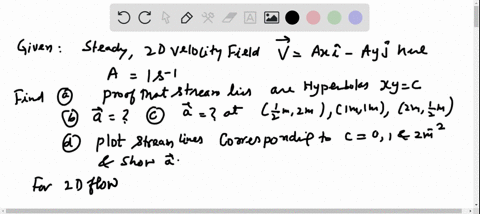 Given: Steady, 2D Velocity Field V⃗ = Axî - Ayĵ here
A = 1 s⁻¹
Find ⓐ Proof that stream lins are Hyperbolas xy=C
ⓑ a⃗ = ? ⓒ a⃗ = ? at (½m, 2m), (1m, 1m), (2m, ½m)
ⓓ plot stream lines Corresponding to C = 0, 1 & 2m²
& show a⃗.
For 2D flow